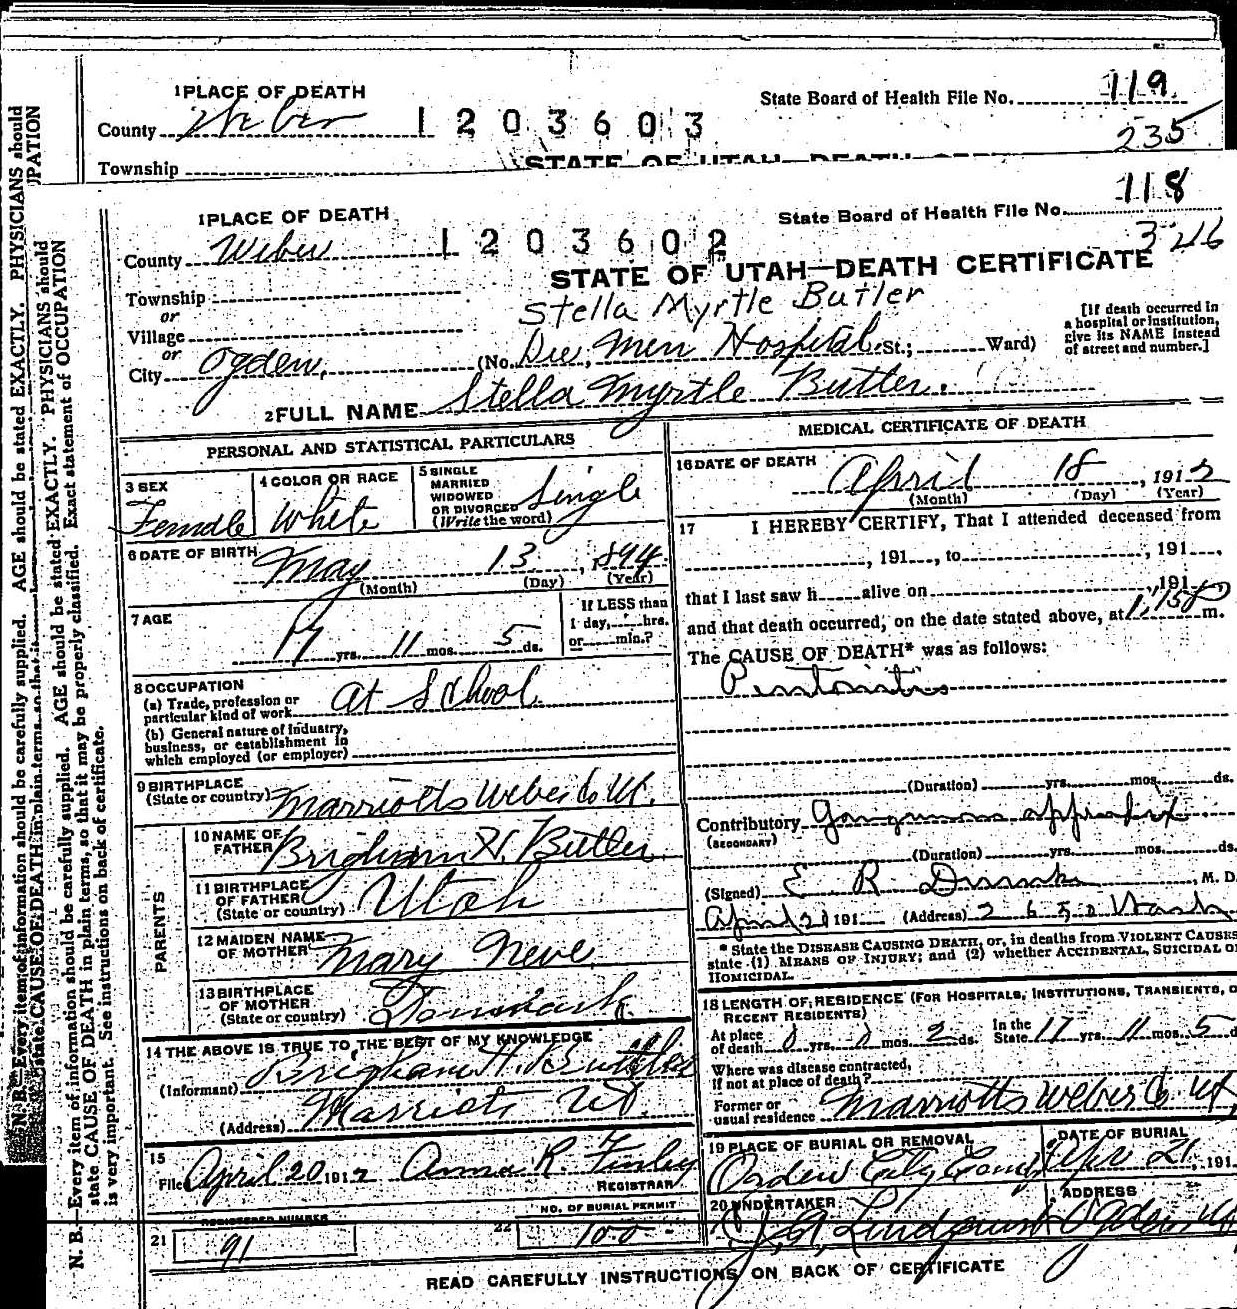 1 PLACE OF DEATH
State Board of Health File No. 119
County Weber 1203603
235
Township
STATE OF UTAH—DEATH
1 PLACE OF DEATH
State Board of Health File No. 118
County Weber 1203602
326
STATE OF UTAH—DEATH CERTIFICATE
Township
or
Stella Myrtle Butler
Village
or
City Ogden, (No. Dee Mem Hospital St.; Ward)
[If death occurred in
a hospital or institution,
give its NAME instead
of street and number.]
2 FULL NAME Stella Myrtle Butler.
PERSONAL AND STATISTICAL PARTICULARS
3 SEX
Female
4 COLOR OR RACE
White
5 SINGLE
MARRIED
WIDOWED
OR DIVORCED
(Write the word)
Single
6 DATE OF BIRTH
May 13, 1894
(Month) (Day) (Year)
7 AGE
17 yrs. 11 mos. 5 ds.
If LESS than
1 day, hrs.
or min.?
8 OCCUPATION
(a) Trade, profession or
particular kind of work At School
(b) General nature of industry,
business, or establishment in
which employed (or employer)
9 BIRTHPLACE
(State or country) Marriotts Weber Co Ut.
PARENTS
10 NAME OF
FATHER Brigham H. Butler
11 BIRTHPLACE
OF FATHER
(State or country) Utah
12 MAIDEN NAME
OF MOTHER Mary Neve
13 BIRTHPLACE
OF MOTHER
(State or country) Denmark
14 THE ABOVE IS TRUE TO THE BEST OF MY KNOWLEDGE
(Informant) Brigham H. Butler
(Address) Marriotts Ut.
15
Filed April 20 1912 Anna R. Finley
REGISTRAR
REGISTERED NUMBER
21 91
NO. OF BURIAL PERMIT
22 100
MEDICAL CERTIFICATE OF DEATH
16 DATE OF DEATH
April 18, 1912
(Month) (Day) (Year)
17 I HEREBY CERTIFY, That I attended deceased from
, 191 , to , 191 ,
that I last saw h alive on , 191
and that death occurred, on the date stated above, at 1:15 m.
The CAUSE OF DEATH* was as follows:
Peritonitis
(Duration) yrs. mos. ds.
Contributory Gangrenous appendix
(SECONDARY)
(Duration) yrs. mos. ds.
(Signed) E R M. D.
April 21 191 (Address) 2650 Wash
* State the DISEASE CAUSING DEATH, or, in deaths from VIOLENT CAUSES
state (1) MEANS OF INJURY; and (2) whether ACCIDENTAL, SUICIDAL O
HOMICIDAL.
18 LENGTH OF RESIDENCE (FOR HOSPITALS, INSTITUTIONS, TRANSIENTS, O
RECENT RESIDENTS)
At place
of death 0 yrs. 0 mos. 2 ds.
In the
State 17 yrs. 11 mos. 5 d
Where was disease contracted,
if not at place of death?
Former or
usual residence Marriotts Weber Co Ut,
19 PLACE OF BURIAL OR REMOVAL
Ogden City Cem
DATE OF BURIAL
Apr 21, 191
20 UNDERTAKER
J. A. Lindquist
ADDRESS
Ogden, Ut
READ CAREFULLY INSTRUCTIONS ON BACK OF CERTIFICATE
N. B.—Every item of information should be carefully supplied. AGE should be stated EXACTLY. PHYSICIANS should
state CAUSE OF DEATH in plain terms, so that it
N. B.—Every item of information should be carefully supplied. AGE should be stated EXACTLY. PHYSICIANS should
state CAUSE OF DEATH in plain terms, so that it may be properly classified. Exact statement of OCCUPATION
is very important. See instructions on back of certificate.